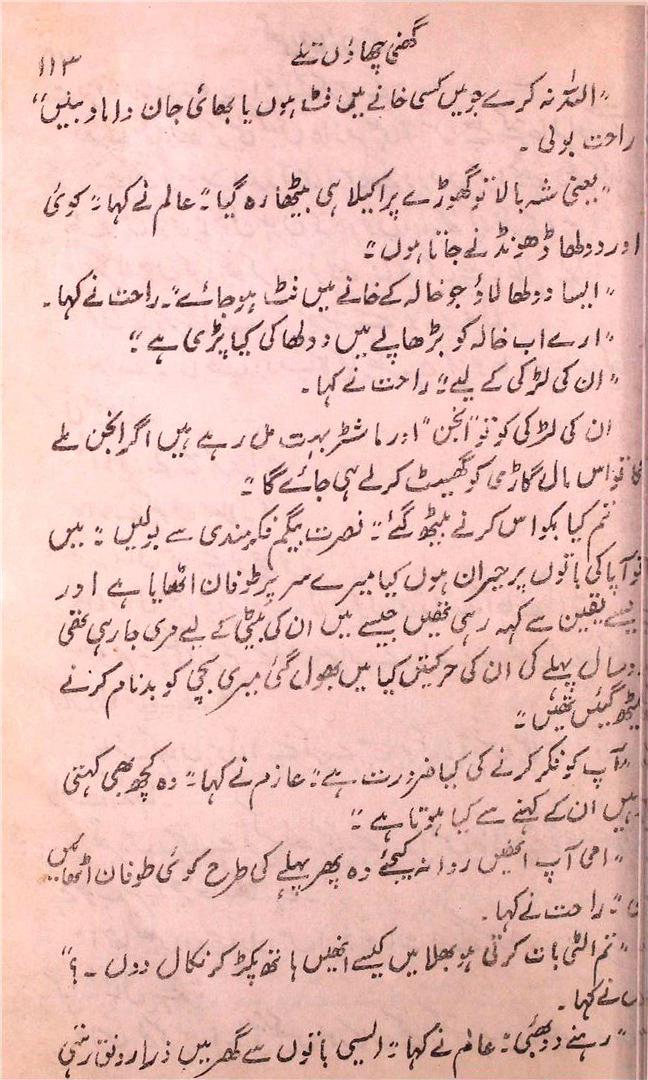 گھنی چھاؤں تلے
۱۱۳
"اللہ نہ کرے جو میں کسی خانے میں فٹ ہوں یا بھائی جان داماد بنیں"
راحت بولی ۔
"یعنی شہ بالا تو گھوڑے پر اکیلا ہی بیٹھا رہ گیا"۔ عالم نے کہا "کوئی
اور دولھا ڈھونڈنے جاتا ہوں"
"ایسا دولھا لاؤ جو خالہ کے خانے میں فٹ ہو جائے"۔ راحت نے کہا۔
"ارے اب خالہ کو بڑھاپے میں دولھا کی کیا پڑی ہے"
"ان کی لڑکی کے لیے" راحت نے کہا۔
ان کی لڑکی کو تو "انجن" اور ماشٹر بہت مل رہے ہیں اگر انجن ملے
گا تو اس مال گاڑی کو گھسیٹ کر لے ہی جائے گا"
تم کیا بکواس کرنے بیٹھ گئے"۔ نصرت بیگم فکرمندی سے بولیں "میں
تو آپا کی باتوں پر حیران ہوں کیا میرے سر پر طوفان اٹھایا ہے اور
جیسے یقین سے کہہ رہی تھیں جیسے میں ان کی بیٹی کے لیے مری جا رہی تھی
دو سال پہلے کی ان کی حرکتیں کیا میں بھول گئی میری بچی کو بدنام کرنے
بیٹھ گئیں تھیں"
"آپ کو فکر کرنے کی کیا ضرورت ہے" عازم نے کہا "وہ کچھ بھی کہتی
رہیں ان کے کہنے سے کیا ہوتا ہے"
"امی آپ انھیں روانہ کیجئے وہ پھر پہلے کی طرح کوئی طوفان اٹھائیں
گی" راحت نے کہا۔
"تم الٹی بات کرتی ہو بھلا میں کیسے انھیں ہاتھ پکڑ کر نکال دوں ۔؟"
نے کہا ۔
"رہنے دو بھئی" عالم نے کہا "ایسی باتوں سے گھر میں ذرا رونق رہتی